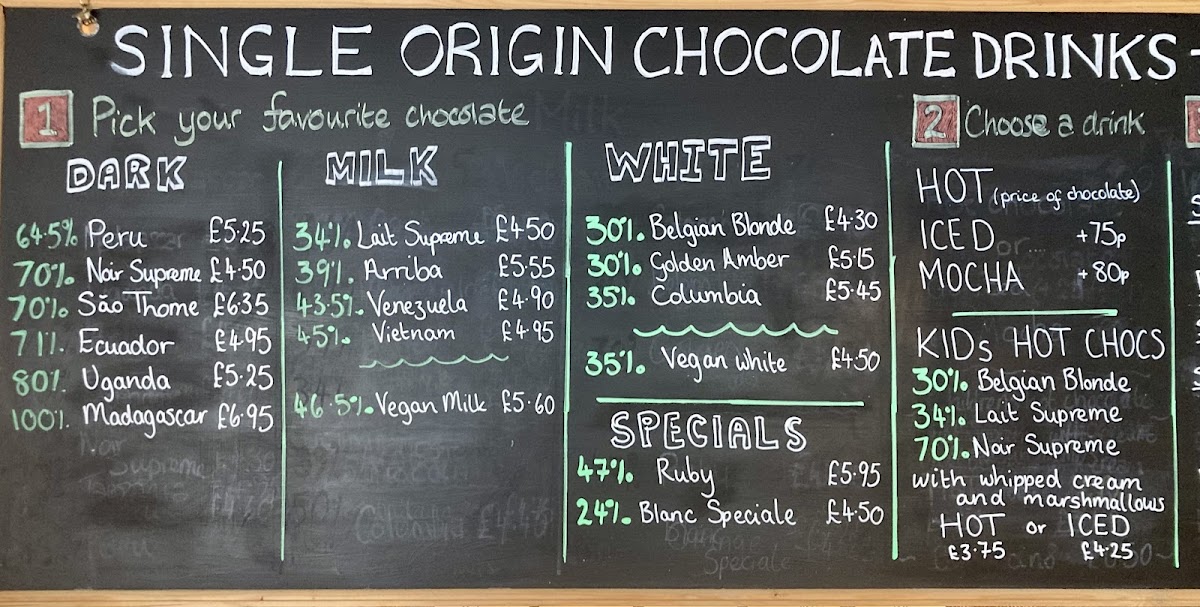 SINGLE ORIGIN CHOCOLATE DRINKS -
1 Pick your favourite chocolate
DARK
64.5% Peru £5.25
70% Noir Supreme £4.50
70% São Thome £6.35
71% Ecuador £4.95
80% Uganda £5.25
100% Madagascar £6.95
MILK
34% Lait Supreme £4.50
39% Arriba £5.55
43.5% Venezuela £4.90
45% Vietnam £4.95
46.5% Vegan Milk £5.60
WHITE
30% Belgian Blonde £4.30
30% Golden Amber £5.15
35% Columbia £5.45
35% Vegan white £4.50
SPECIALS
47% Ruby £5.95
24% Blanc Speciale £4.50
2 Choose a drink
HOT (price of chocolate)
ICED +75p
MOCHA +80p
KIDs HOT CHOCS
30% Belgian Blonde
34% Lait Supreme
70% Noir Supreme
with whipped cream
and marshmallows
HOT or ICED
£3.75 £4.25